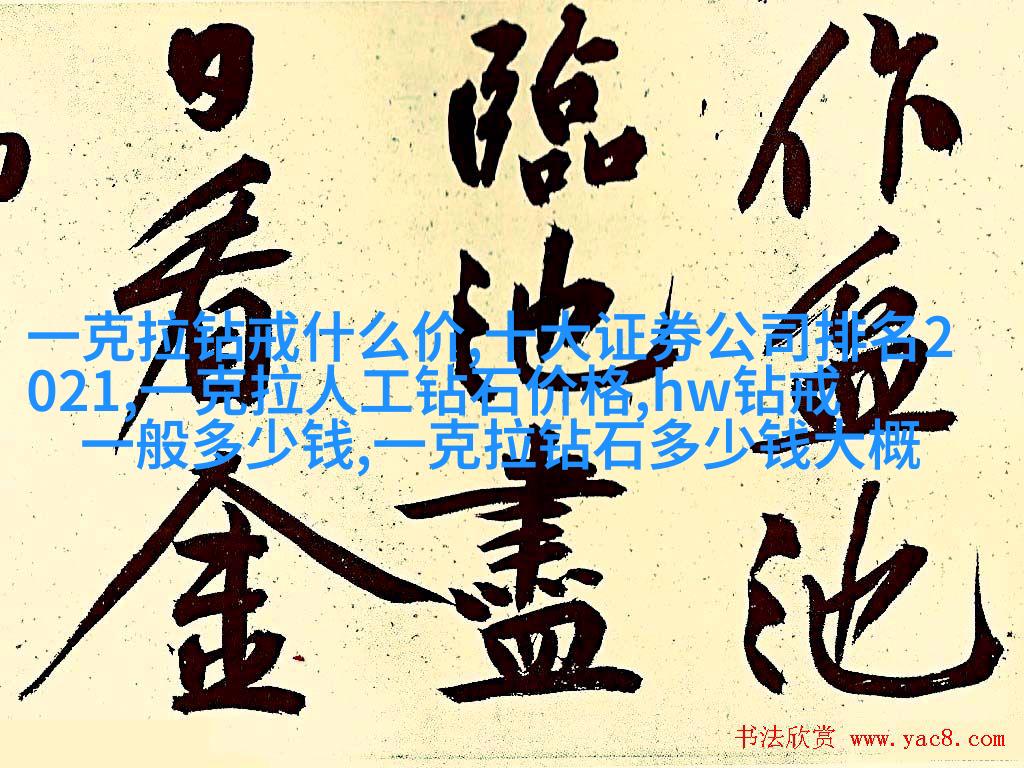 作盆池
臨池盡
日看金
一克拉钻戒什么价,十大证券公司排名2
021,一克拉人工钻石价格,hw钻戒
一般多少钱,一克拉钻石多少钱大概
书法欣赏 www.yac8.com